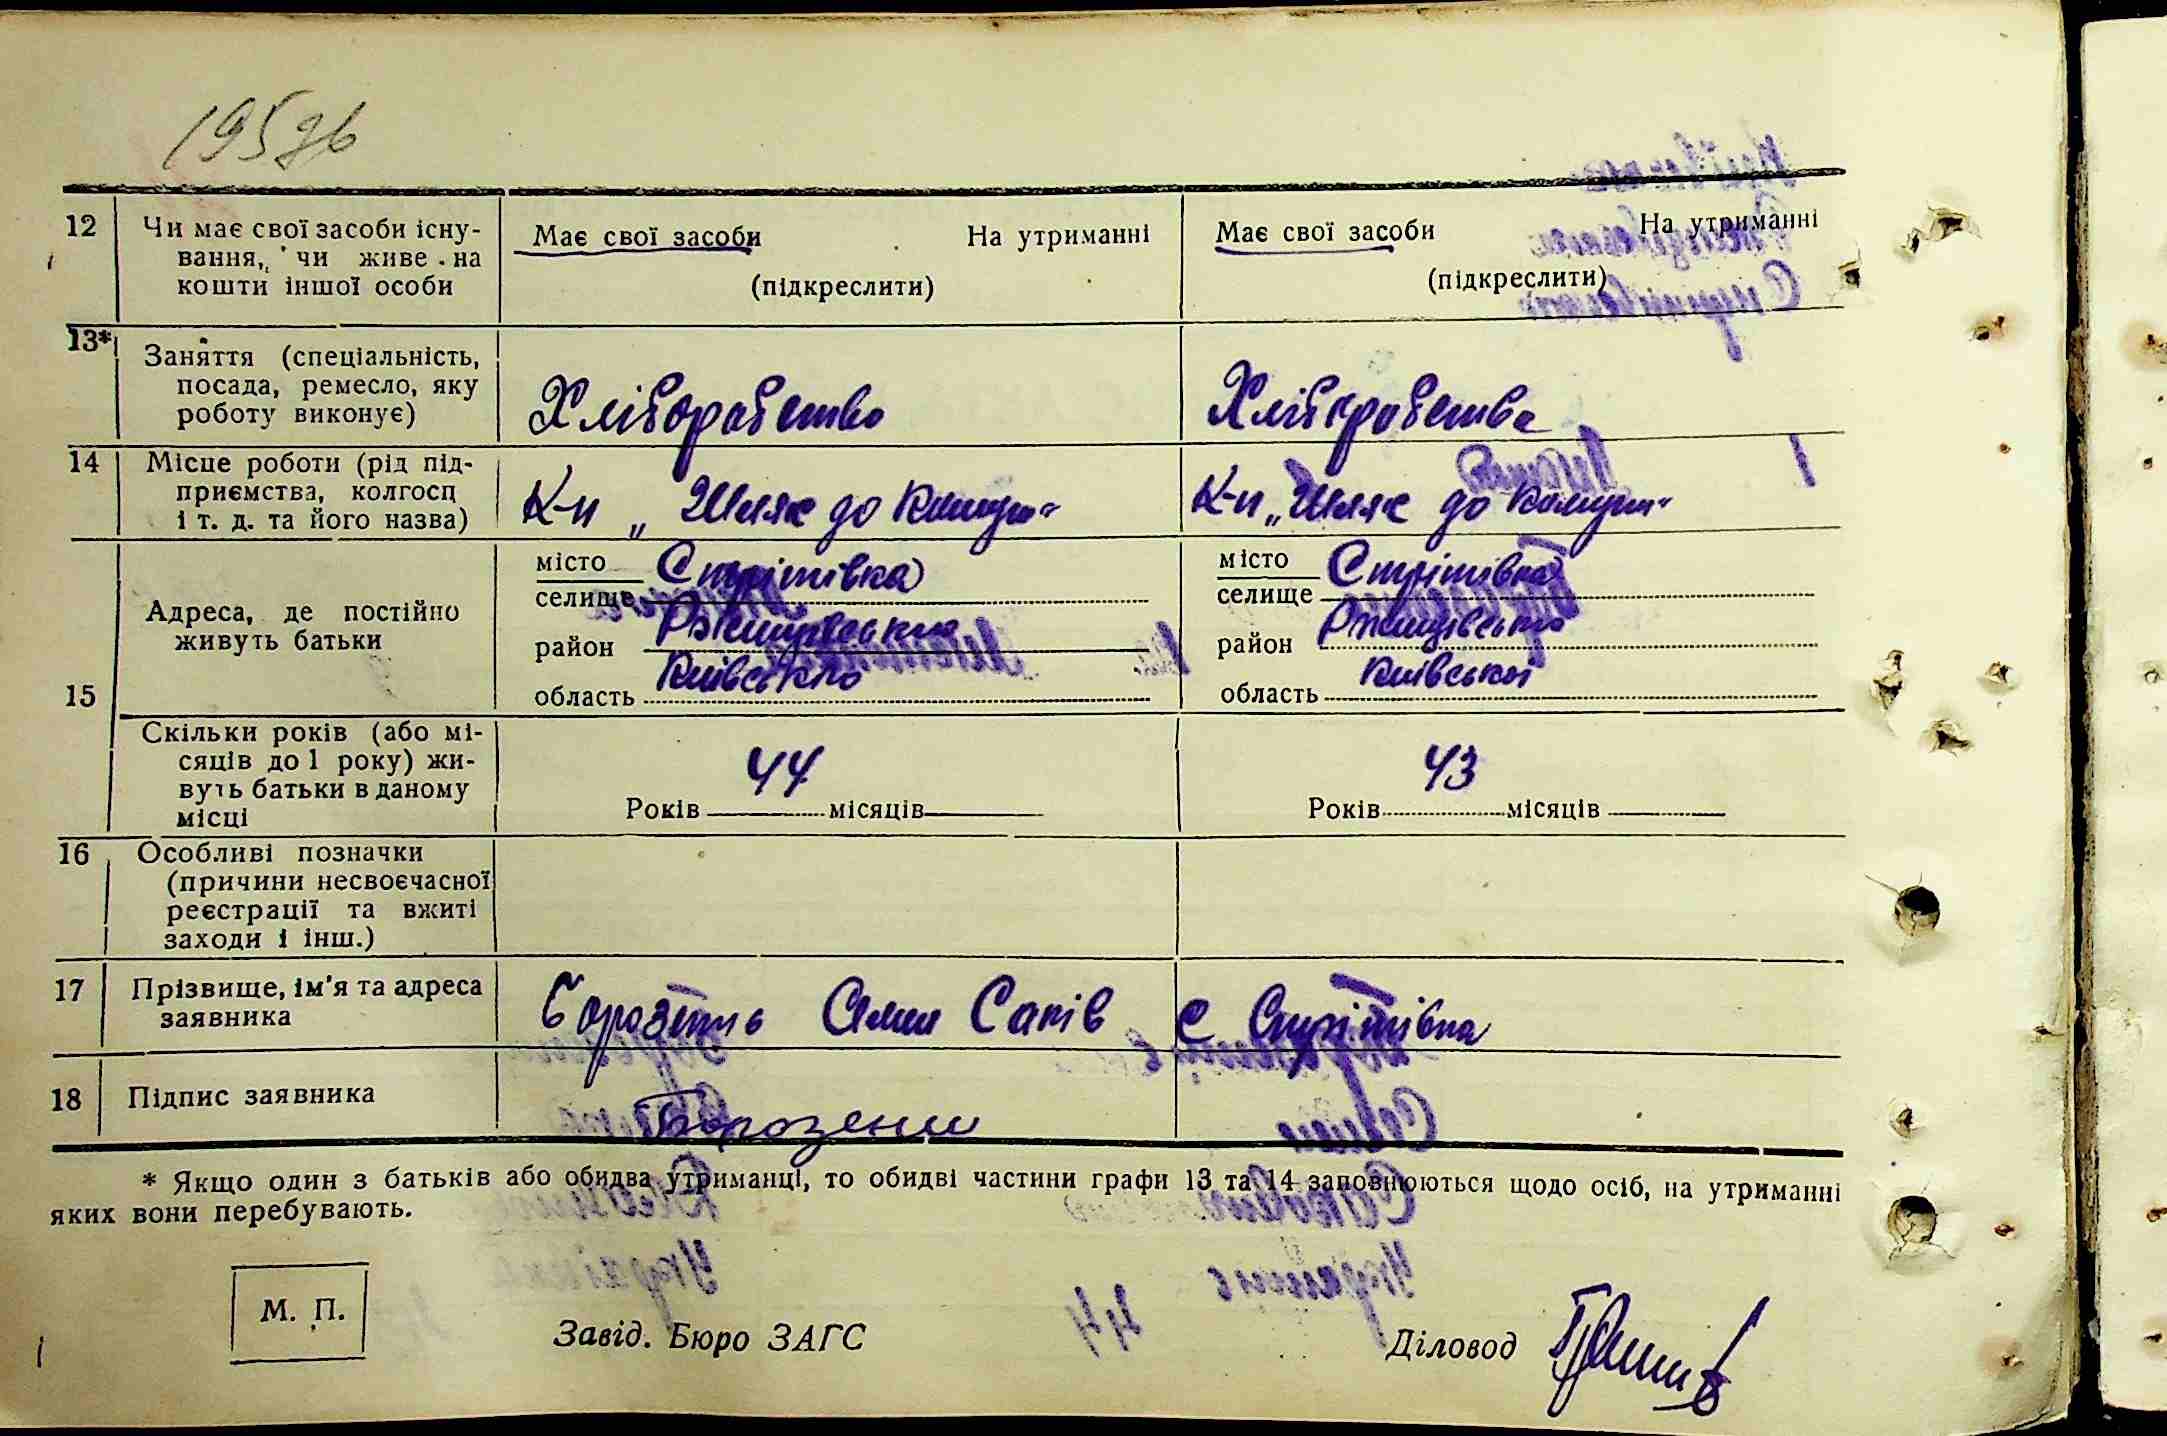 195
12
Чи має свої засоби існу-
вання, чи живе на
кошти іншої особи
Має свої засоби На утриманні
(підкреслити)
Має свої засоби На утриманні
(підкреслити)
13*
Заняття (спеціальність,
посада, ремесло, яку
роботу виконує)
Хліборобство
Хліборобство
14
Місце роботи (рід під-
приємства, колгосп
і т. д. та його назва)
К-п „Шлях до Комуни"
К-п „Шлях до Комуни"
15
Адреса, де постійно
живуть батьки
місто
селище Стрітівка
район Ржищівського
область Київської
місто
селище Стрітівка
район Ржищівського
область Київської
Скільки років (або мі-
сяців до 1 року) жи-
вуть батьки в даному
місці
44
Років місяців
43
Років місяців
16
Особливі позначки
(причини несвоєчасної
реєстрації та вжиті
заходи і інш.)
17
Прізвище, ім'я та адреса
заявника
Семен Саків с Стрітівка
18
Підпис заявника
* Якщо один з батьків або обидва утриманці, то обидві частини графи 13 та 14 заповнюються щодо осіб, на утриманні
яких вони перебувають.
М. П.
Завід. Бюро ЗАГС
Діловод